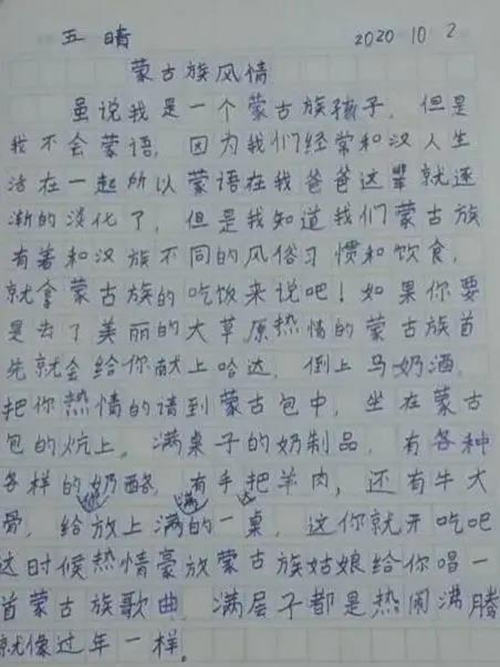 五 晴 2020 10 2
蒙古族风情
虽说我是一个蒙古族孩子，但是
我不会蒙语，因为我们经常和汉人生
活在一起所以蒙语在我爸爸这辈就逐
渐的淡化了，但是我知道我们蒙古族
有着和汉族不同的风俗习惯和饮食，
就拿蒙古族的吃饭来说吧！如果你要
是去了美丽的大草原热情的蒙古族首
先就会给你献上哈达，倒上马奶酒，
把你热情的请到蒙古包中，坐在蒙古
包的炕上，满桌子的奶制品，有各种
各样的奶酪，有手把羊肉，还有牛大
骨，给放上满的一桌，这你就开吃吧
这时候热情豪放蒙古族姑娘给你唱一
首蒙古族歌曲，满层子都是热闹满腾
就像过年一样。